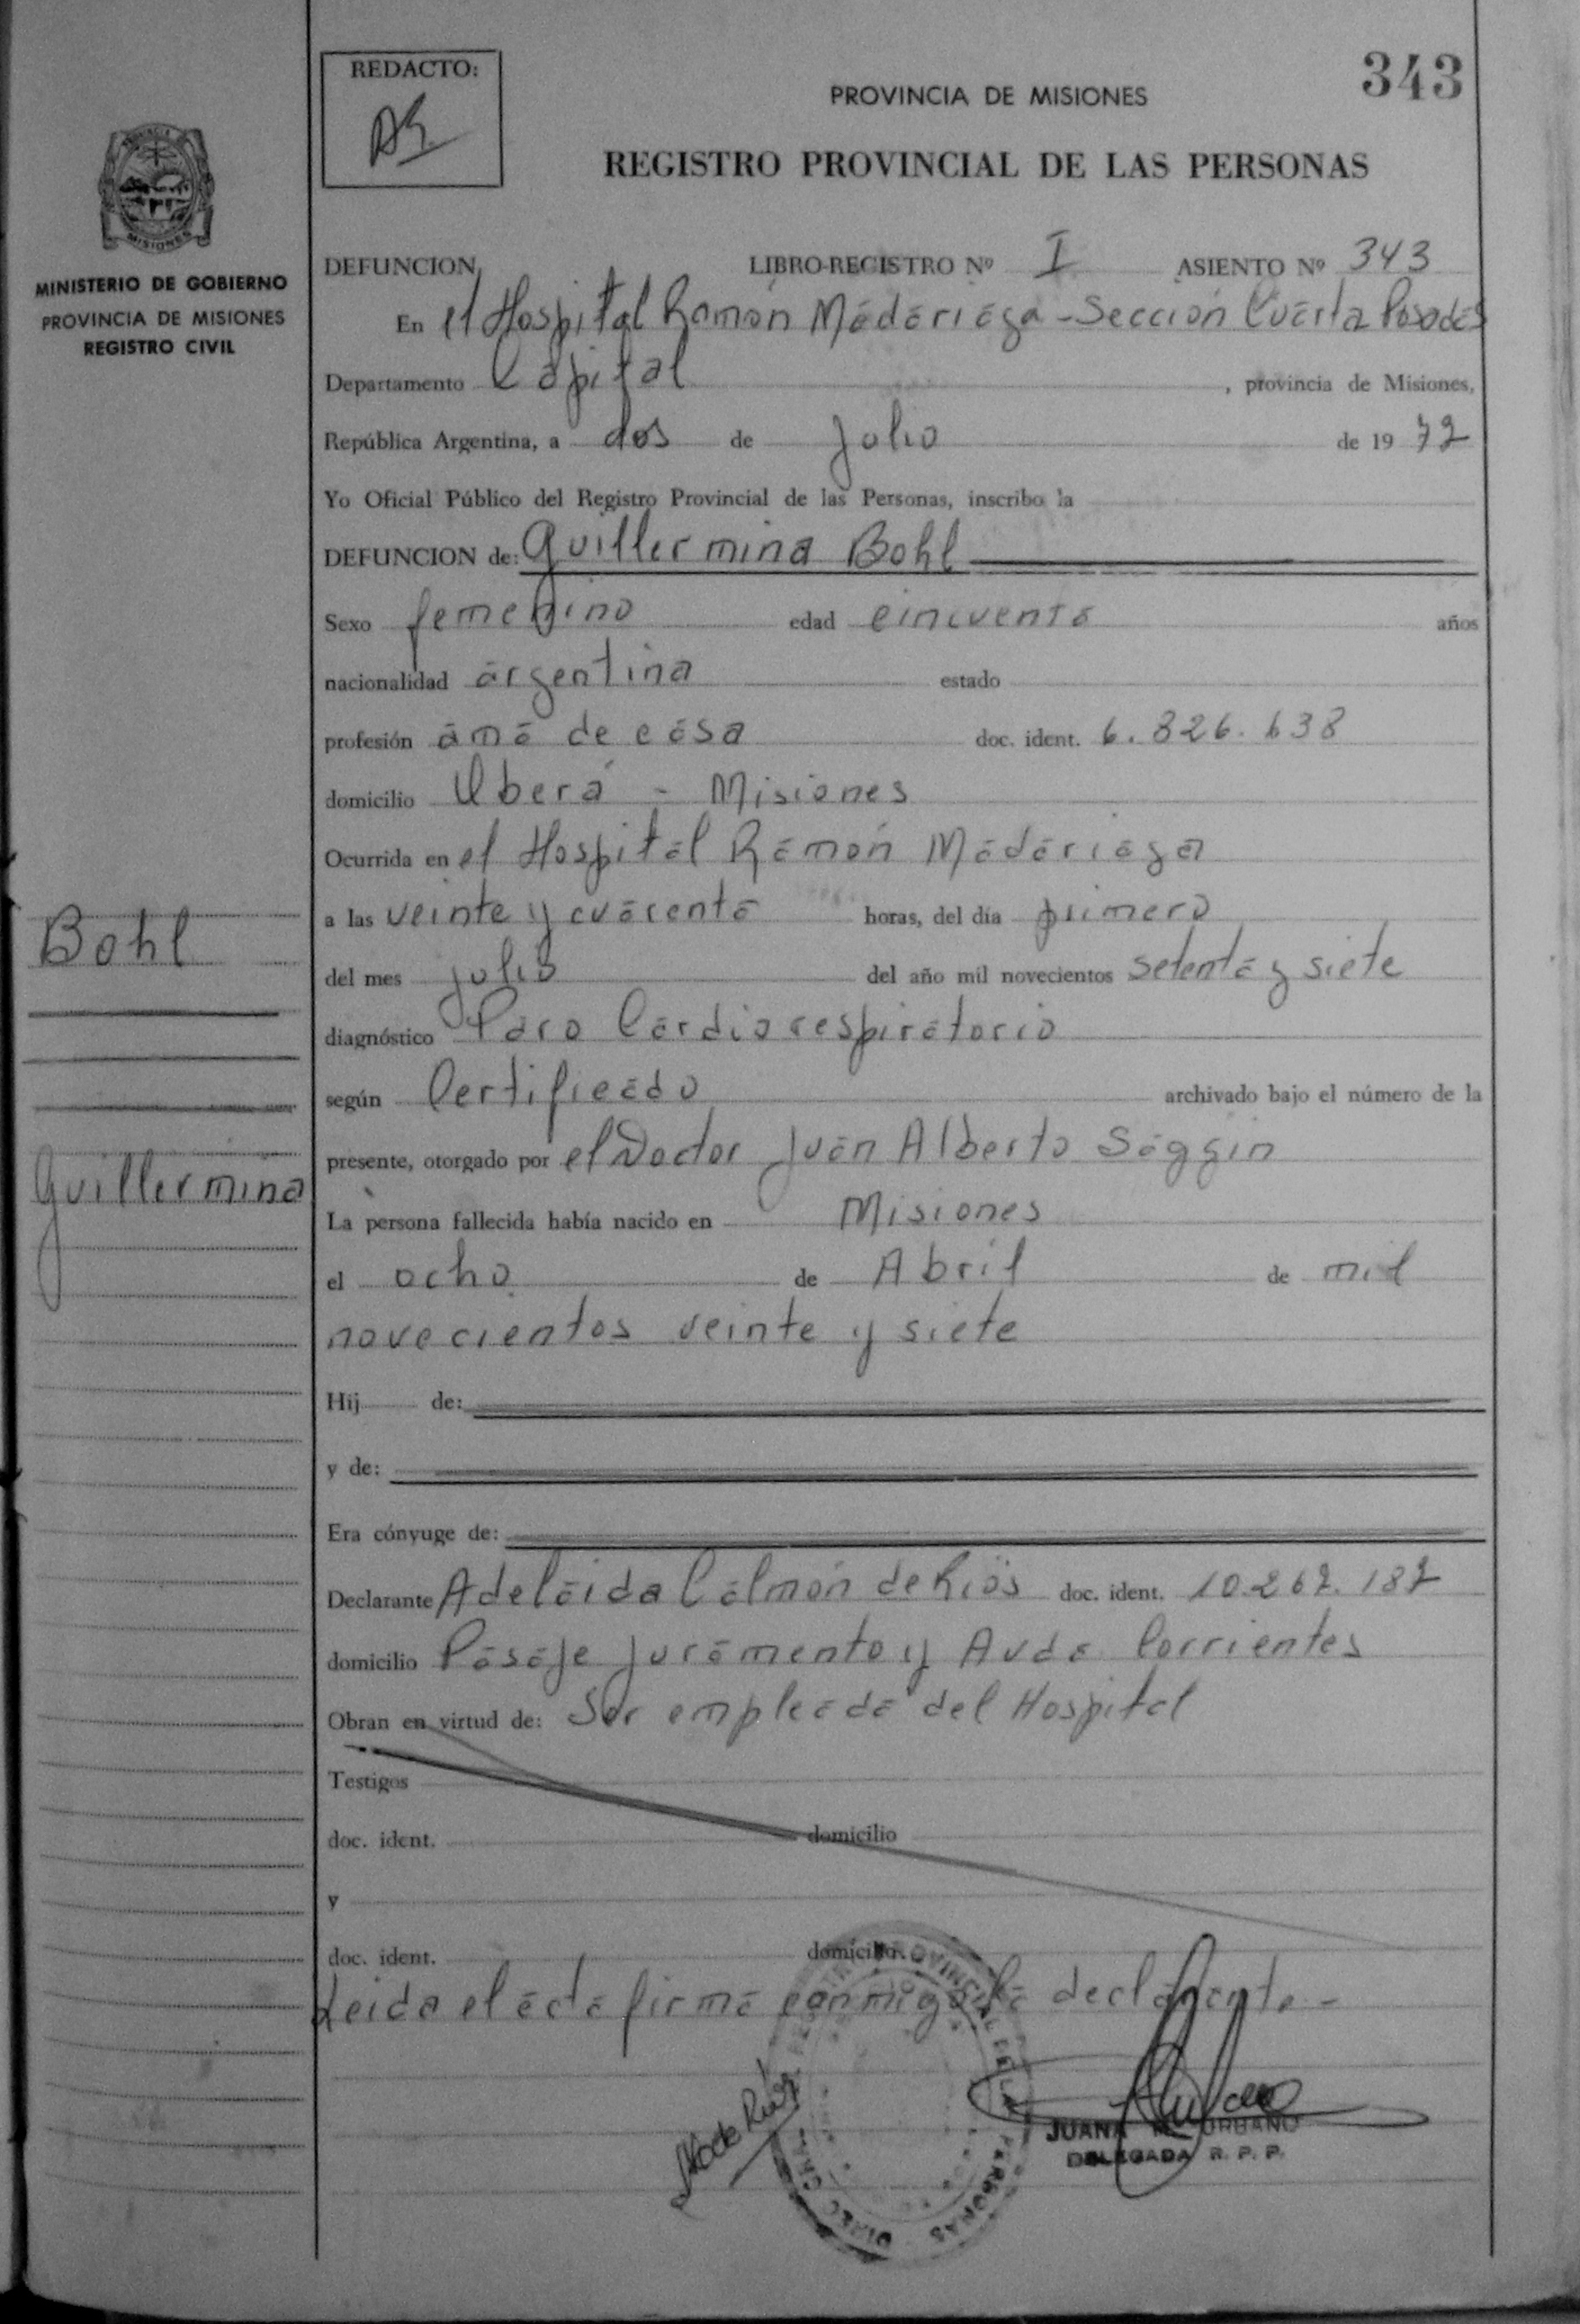 REDACTO:
343
PROVINCIA DE MISIONES
REGISTRO PROVINCIAL DE LAS PERSONAS
MISIONES
MINISTERIO DE GOBIERNO
PROVINCIA DE MISIONES
REGISTRO CIVIL
DEFUNCION LIBRO-REGISTRO Nº I ASIENTO Nº 343
En el Hospital Ramón Madariaga - Sección Cuarta Posadas
Departamento Capital , provincia de Misiones,
República Argentina, a dos de Julio de 19 77
Yo Oficial Público del Registro Provincial de las Personas, inscribo la
DEFUNCION de: Guillermina Bohl
Sexo femenino edad cincuenta años
nacionalidad argentina estado
profesión ama de casa doc. ident. 6.826.638
domicilio Oberá - Misiones
Ocurrida en el Hospital Ramón Madariaga
a las veinte y cuarenta horas, del día primero
del mes julio del año mil novecientos setenta y siete
diagnóstico Paro Cardiorespiratorio
según Certificado archivado bajo el número de la
presente, otorgado por el Doctor Juan Alberto Saggin
La persona fallecida había nacido en Misiones
el ocho de Abril de mil
novecientos veinte y siete
Hij de:
y de:
Era cónyuge de:
Declarante Adelaida Calmón de Ríos doc. ident. 10.267.187
domicilio Pasaje Juramento y Avda Corrientes
Obran en virtud de: Ser empleada del Hospital
Testigos
doc. ident. domicilio
y
doc. ident. domicilio
Leida el acta firma conmigo la declarante.-
JUANA URBANO
DELEGADA R. P. P.
Bohl
Guillermina